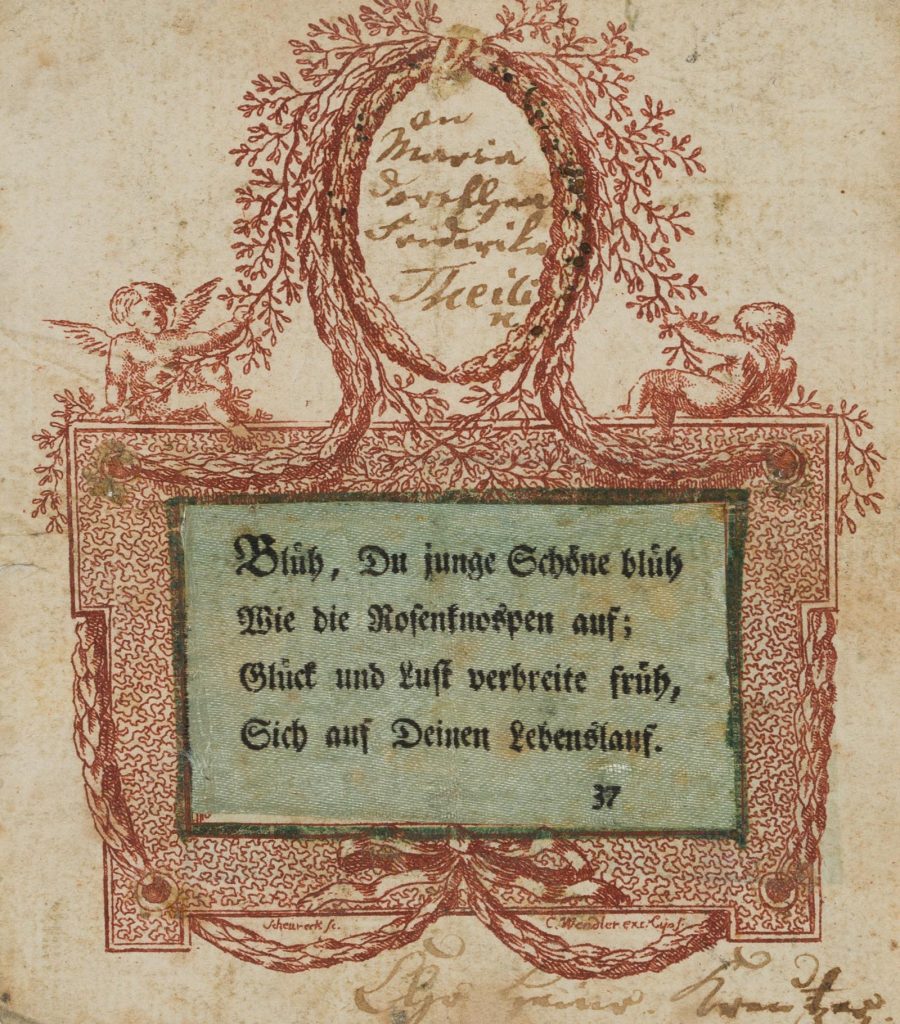 an
Maria
Dorethea
Friderika
Theili
n
Blüh, Du junge Schöne blüh
Wie die Rosenknospen auf;
Glück und Lust verbreite früh,
Sich auf Deinen Lebenslauf.
37
Scheureck sc.
C. Wendler exc. Lips.